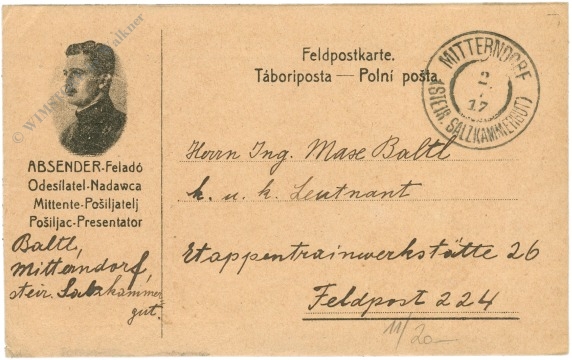 Feldpostkarte.
Táboriposta — Polní pošta.
MITTERNDORF
2
17
(STEIR. SALZKAMMERGUT)
ABSENDER-Feladó
Odesílatel-Nadawca
Mittente-Pošiljatelj
Pošiljac-Presentator
Baltl,
Mitterndorf,
steir. Salzkammer
gut.
Herrn Ing. Max Baltl
k. u. k. Leutnant
Etappentrainwerkstätte 26
Feldpost 224
11/20-